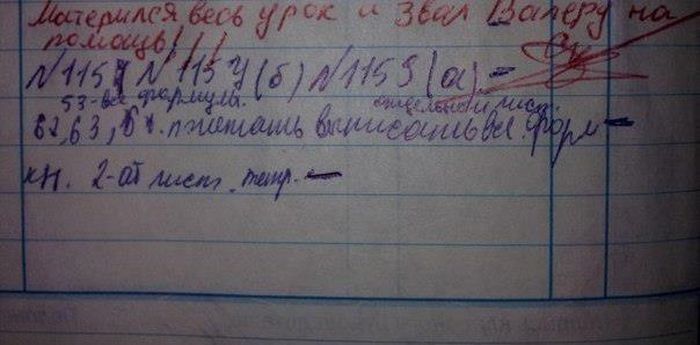 Матерился весь урок и звал Валеру на
помощь!!!
N1157 N1154(б) N1159(а)
53-все формулы. отдельный лист.
62,63, выписать все форм
кн. 2-ой лист. тетр.